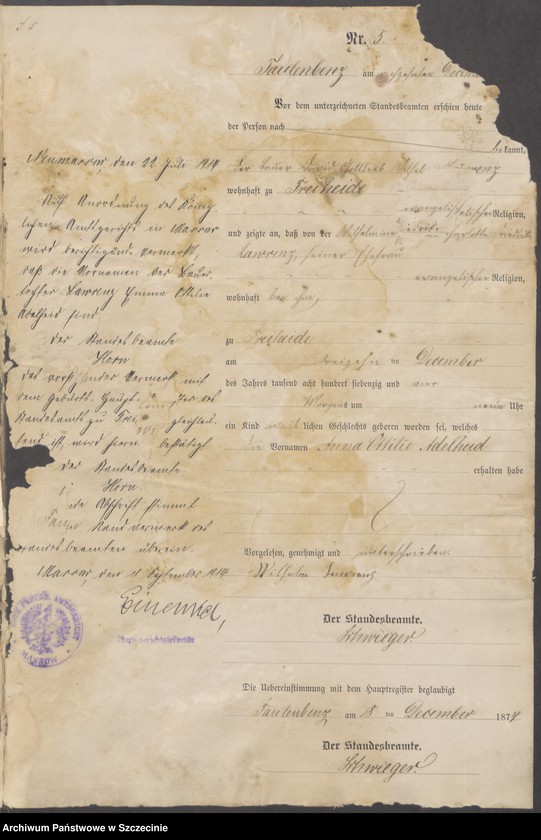 Nr. 5.
Faulenbenz am achtzehnten Decem
Vor dem unterzeichneten Standesbeamten erschien heute
der Person nach
bekannt,
der Bauer David Gottlieb
wohnhaft zu Freiheide
evangelischer Religion,
und zeigte an, daß von der Wilhelmine
Lawrenz, seiner Ehefrau
evangelischer Religion,
wohnhaft bei ihm,
zu Freiheide
am dreizehn ten December
des Jahres tausend acht hundert siebenzig und vier
Morgens um neun Uhr
ein Kind weiblichen Geschlechts geboren worden sei, welches
die Vornamen Anna Ottilie Adelheid
erhalten habe
Vorgelesen, genehmigt und unterschrieben.
Wilhelm Lawrenz
Der Standesbeamte.
Schwieger.
Die Uebereinstimmung mit dem Hauptregister beglaubigt
Faulenbenz am 18 ten December 1874
Der Standesbeamte.
Schwieger.
den 22. Juli 1914
Auf Anordnung des König
lichen Amtsgerichts in Massow
wird berichtigend vermerkt,
daß die Vornamen der Bauer
tochter Lawrenz Emma Ottilie
Adelheid sind.
Der Standesbeamte
Horn.
Das vorstehender Vermerk mit
dem Geburts-Haupt
Standesamts zu gleichlau
tend ist, wird hiermit bestätigt
Der Standesbeamte
Horn.
Die Abschrift stimmt
Randvermerk des
Standesbeamten überein.
Massow, den September 1914
MASSOW
Archiwum Państwowe w Szczecinie